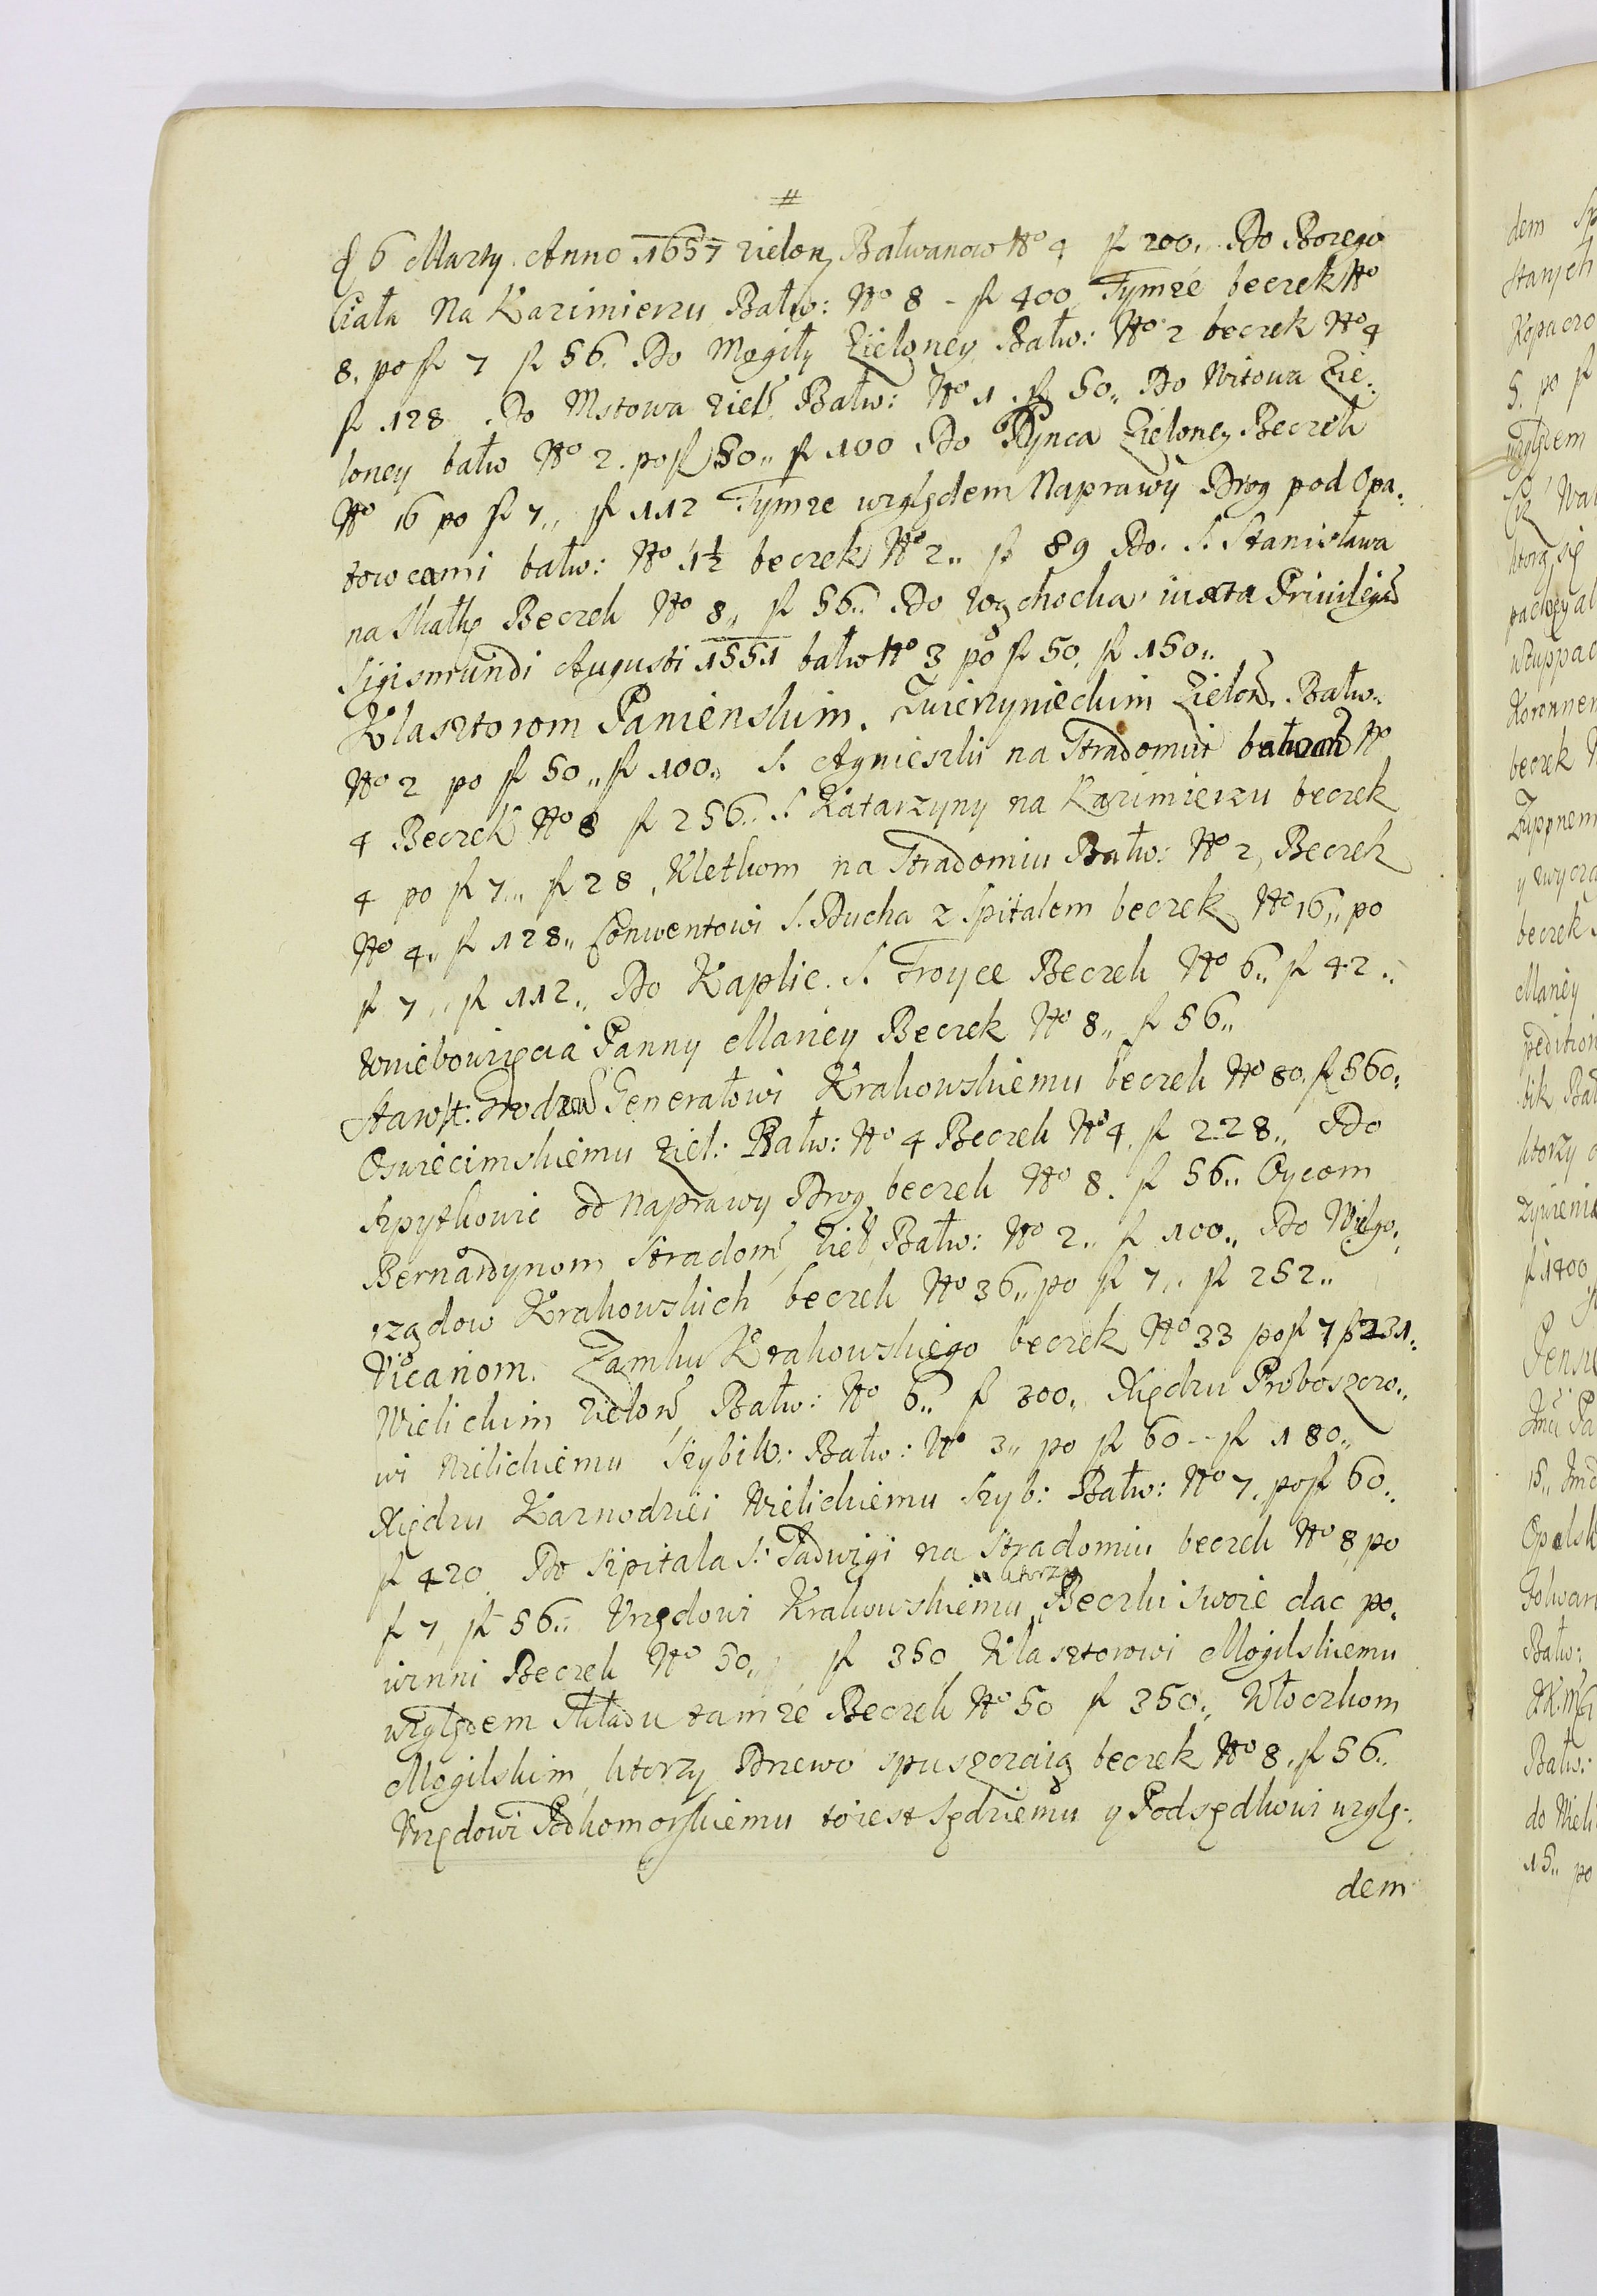 #
d 6 Marty Anno 1657 zielon Bałwanow No 4 fl 200. Do Bozego
Ciała Na Kazimierzu Bałw: No 8 - fl 400 Tymze beczek No
8. po fl 7 fl 56. Do Mogiły Zieloney Bałw: No 2 beczek No 4
fl 128. Do Mstowa ziel Bałw: No 1 fl 50,, Do Witowa Zie-
loney bałw No 2. po fl 50,, fl 100 Do Tynca Zieloney Beczek
No 16 po fl 7,, fl 112 Tymze względem Naprawy Drog pod Opa-
towcami bałw: No 1½ beczek No 2,, fl 89 Do. S. Stanisława
na Skałkę Beczek No 8,, fl 56.. Do Wąchocka iuxta Privilegium
Sigismundi Augusti 1551 bałw No 3 po fl 50. fl 150,,
Klasztorom Panienskim. Zwierzynieckim Zielon. Bałw.
No 2 po fl 50,, fl 100,, S. Agnieszki na Stradomiu bałwan No
4 Beczek No 8 fl 256.. S. Katarzyny na Kazimierzu beczek
4 po fl 7,, fl 28, Kletkom na Stradomiu Bałw: No 2, Beczek
No 4,, fl 128,, Conwentowi S. Ducha z Spitalem beczek No 16,, po
fl 7,, fl 112,, Do Kaplic. S. Troyce Beczek No 6,, fl 42..
Wniebowzięcia Panny Mariey Beczek No 8,, fl 56,,
Staros: Grodzm Generałowi Krakowskiemu beczek No 80. fl 560.
Oswiecimskiemu ziel: Bałw: No 4 Beczek No 4. fl 228,, Do
Szpytkowic od Naprawy Drog beczek No 8. fl 56.. Oycom
Bernardynom Stradom, Ziel Bałw: No 2,, fl 100,, Do Wielgo-
rządow Krakowskich beczek No 36,, po fl 7,, fl 252,,
Vicariom. Zamku Krakowskiego beczek No 33 po fl 7 fl 231.
Wielickim Zielon Bałw: No 6,, fl 300,, Xiędzu Proboszczo-
wi Wielickiemu Szybik: Bałw: No 3,, po fl 60 - - fl 180,,
Xiędzu Kaznodziei Wielickiemu Szyb: Bałw: No 7, po fl 60..
fl 420 Do Szpitala S. Jadwigi na Stradomiu beczek No 8, po
ktorzy
fl 7, fl 56.. Urzędowi Krakowskiemu,, Beczki swoie dac po-
winni Beczek No 50,, fl 350 Klasztorowi Mogilskiemu
względem Składu tamze Beczek No 50 fl 350,, Włoczkom
Mogilskim, ktorzy Drzewo spuszczaią beczek No 8. fl 56.
Urzędowi Podkomorskiemu toiest Sędziemu y Podsędkowi wzglę-
dem
dem
stanych
Kopaczo
5. po fl
względem
ktorą się
Koronnem
beczek
Zuppnem
beczek
Mariey
ktorzy
fl 1400
Folwar
Bałw:
Bałw:
do Wieli
15,, po